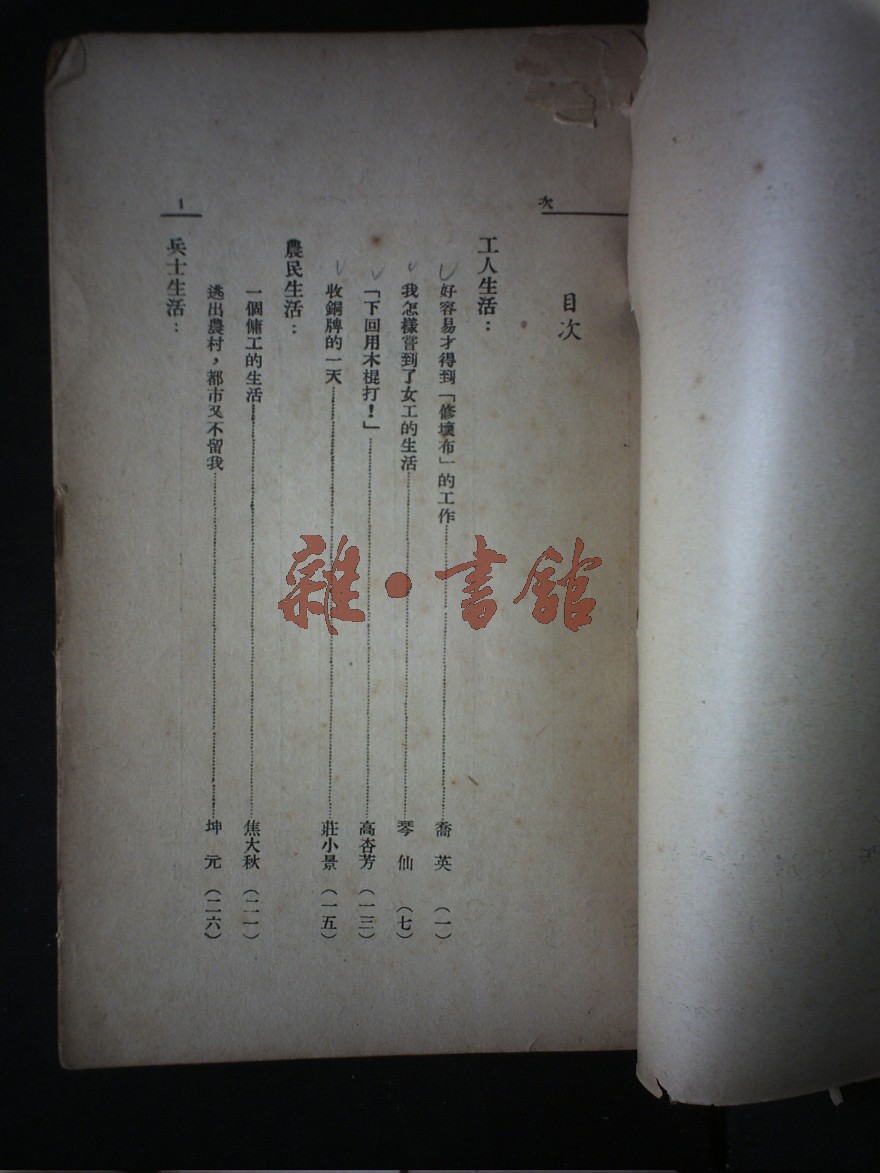 次
目次
工人生活：
好容易才得到「修壞布」的工作 喬英（一）
我怎樣嘗到了女工的生活 琴仙（七）
「下回用木棍打！」 高杏芳（一三）
收銅牌的一天 莊小景（一五）
農民生活：
一個傭工的生活 焦大秋（二一）
逃出農村，都市又不留我 坤元（二六）
兵士生活：
1
雜・書館